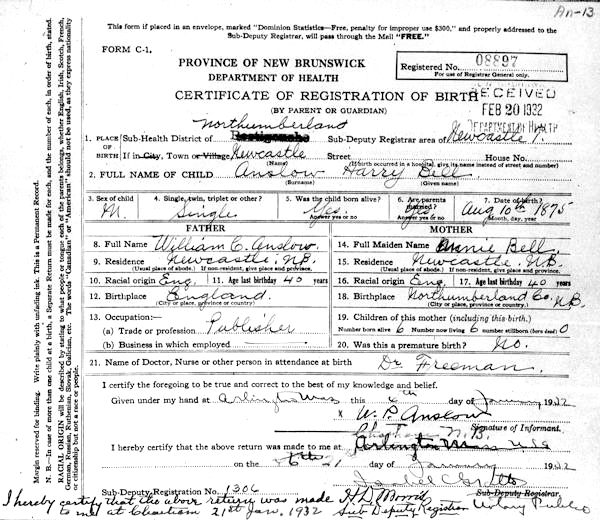 An-13
This form if placed in an envelope, marked "Dominion Statistics—Free, penalty for improper use $300," and properly addressed to the
Sub-Deputy Registrar, will pass through the Mail "FREE."
FORM C-1.
PROVINCE OF NEW BRUNSWICK
DEPARTMENT OF HEALTH
Registered No. 08897
For use of Registrar General only.
CERTIFICATE OF REGISTRATION OF BIRTH
(BY PARENT OR GUARDIAN)
RECEIVED
FEB 20 1932
DEPARTMENT OF HEALTH
Northumberland
1. PLACE OF BIRTH Sub-Health District of Restigouche Sub-Deputy Registrar area of Newcastle
If in City, Town or Village Newcastle Street House No.
(Name) (If birth occurred in hospital, give its name instead of street and number)
2. FULL NAME OF CHILD Anslow Harry Bell
(Surname) (Given name)
3. Sex of child M. 4. Single, twin, triplet or other? Single 5. Was the child born alive? Answer yes or no Yes. 6. Are parents married? Answer yes or no Yes 7. Date of birth? Month, day, year Aug 10th 1875
FATHER
8. Full Name William C. Anslow.
9. Residence Newcastle, N.B.
(Usual place of abode.) If non-resident, give place and province.
10. Racial origin Eng. 11. Age last birthday 40 years
12. Birthplace England.
(City or place, province or country)
13. Occupation:—
(a) Trade or profession Publisher
(b) Business in which employed
MOTHER
14. Full Maiden Name Annie Bell
15. Residence Newcastle, N.B.
(Usual place of abode.) If non-resident, give place and province.
16. Racial origin Eng. 17. Age last birthday 40 years
18. Birthplace Northumberland Co. N.B.
(City or place, province or country)
19. Children of this mother (including this birth.)
Number born alive 6 Number now living 6 number stillborn (born dead) 0
20. Was this a premature birth? No.
21. Name of Doctor, Nurse or other person in attendance at birth Dr Freeman.
I certify the foregoing to be true and correct to the best of my knowledge and belief.
Given under my hand at Arlington Mass this 6th day of January 1932
x W. P. Anslow
Signature of Informant.
I hereby certify that the above return was made to me at Arlington Mass
on the 6th day of January 1932
Sub-Deputy Registrar.
Notary Public
Sub-Deputy Registration No. 1306
I hereby certify that the above return was made
to me at Chatham 21st Jan. 1932 Sub Deputy Registrar
Margin reserved for binding. Write plainly with unfading ink. This is a Permanent Record.
N. B.—In case of more than one child at a birth, a Separate Return must be made for each, and the number of each, in order of birth, stated.
RACIAL ORIGIN will be described by stating to what people or tongue each of the parents belongs, whether English, Irish, Scotch, French,
German, Russian, Ruthenian, Slovak, Galician, etc. The words "Canadian" or "American" should not be used, as they express nationality
or citizenship but not a race or people.